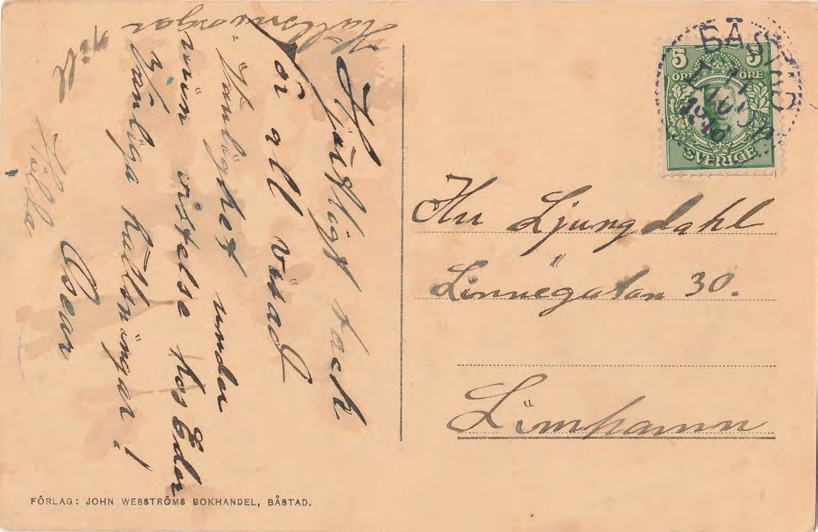 Hjärtligt tack
för all visad
vänlighet under
min vistelse hos Eder
Vänliga hälsningar!
Oscar
Hälsningar
till
BÅSTAD
5 5
ÖRE ÖRE
SVERIGE
Hr Ljungdahl
Linnégatan 30.
Limhamn
FÖRLAG: JOHN WESSTRÖMS BOKHANDEL, BÅSTAD.